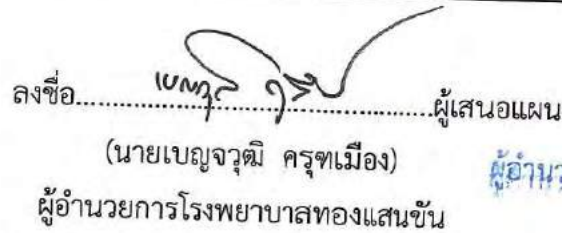 ลงชื่อ......................................................ผู้เสนอแผน
(นายเบญจวุฒิ ครุฑเมือง)
ผู้อำนว
ผู้อำนวยการโรงพยาบาลทองแสนขัน